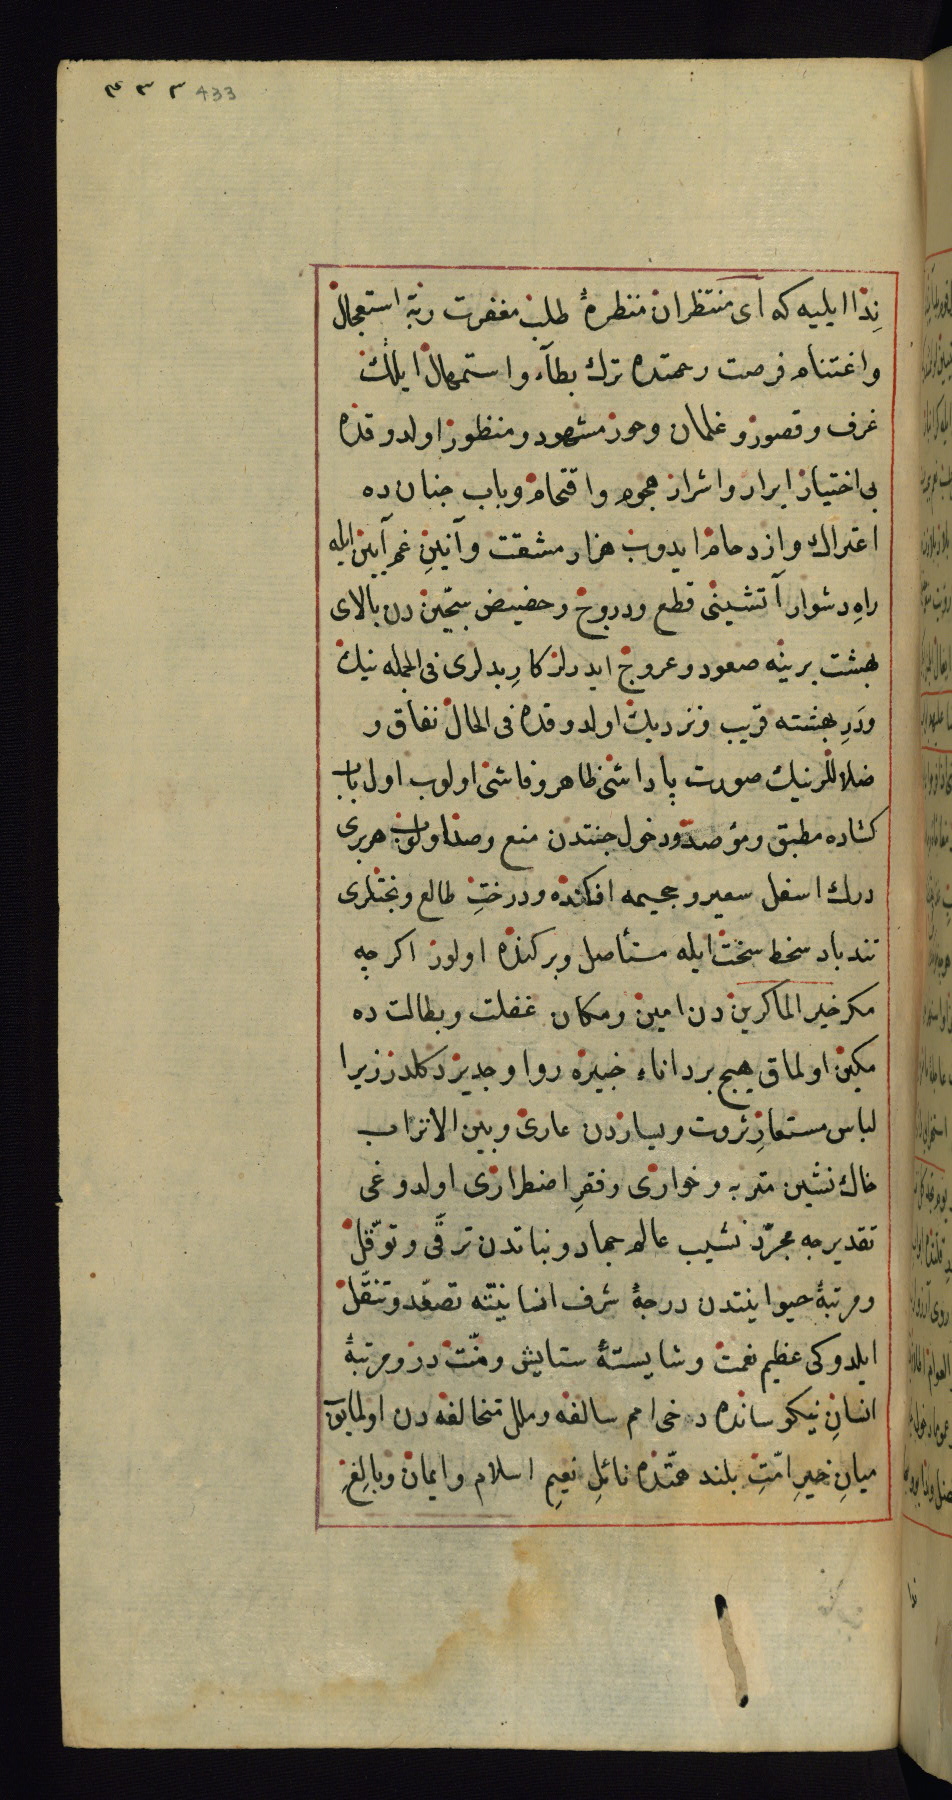 ٤٣٣ 433
ندا ایلیه که ای منتظران منظرهٔ طلب مغفرت رتبهٔ استعجال
واغتنام فرصت رحمتده ترك بطآء واستمهال ایلمك
غرف وقصور و غلمان وحور مشهود ومنظور اولدوقده
بی اختیار ابرار واشرار هجوم واقتحام وباب جنان ده
اعتراك وازدحام ایدوب هزار مشقت وآنینِ غم آیین ایله
راهِ دشوار آتشینی قطع ودروج وحضیض سجّین دن بالای
بهشت برینه صعود وعروج ایدرلر کارِ بدلری فی الجمله نیك
ودَرِ بهشته قریب ونزدیك اولدوقده فی الحال نفاق و
ضلاللرنیك صورت پاداشنی ظاهر وفاشی اولوب اول باب
کشاده مطبق ومؤصد ودخول جنتدن منع وصد اولوب هربری
درك اسفل سعیر وجحیمه افکنده ودرختِ طالع وبختلری
تندباد سخط سخت ایله مستأصل وبرکنده اولور اکرچه
مکر خیر الماکرین دن امین ومکان غفلت وبطالت ده
مکین اولماق هیچ بر داناء خبیره روا وجدیر دکلدر زیرا
لباس مستعارِ ثروت ویساردن عاری وبین الاتراب
خاك نشین متربه وخواری وفقرِ اضطراری اولدوغی
تقدیرجه مجرّد نشیب عالم جماد ونباتدن ترقّی وتوقّل
ومرتبهٔ حیوانیتدن درجهٔ شرف انسانیته تصعّد وتنقّل
ایلدوکی عظیم نعمت وشایستهٔ ستایش ومنّت در ومرتبهٔ
انسانِ نیکو سانده دخی امم سالفه وملل متخالفه دن اولمایوب
میانِ خیرِ امّتِ بلند همّتده نائلِ نعیمِ اسلام وایمان وبالغِ